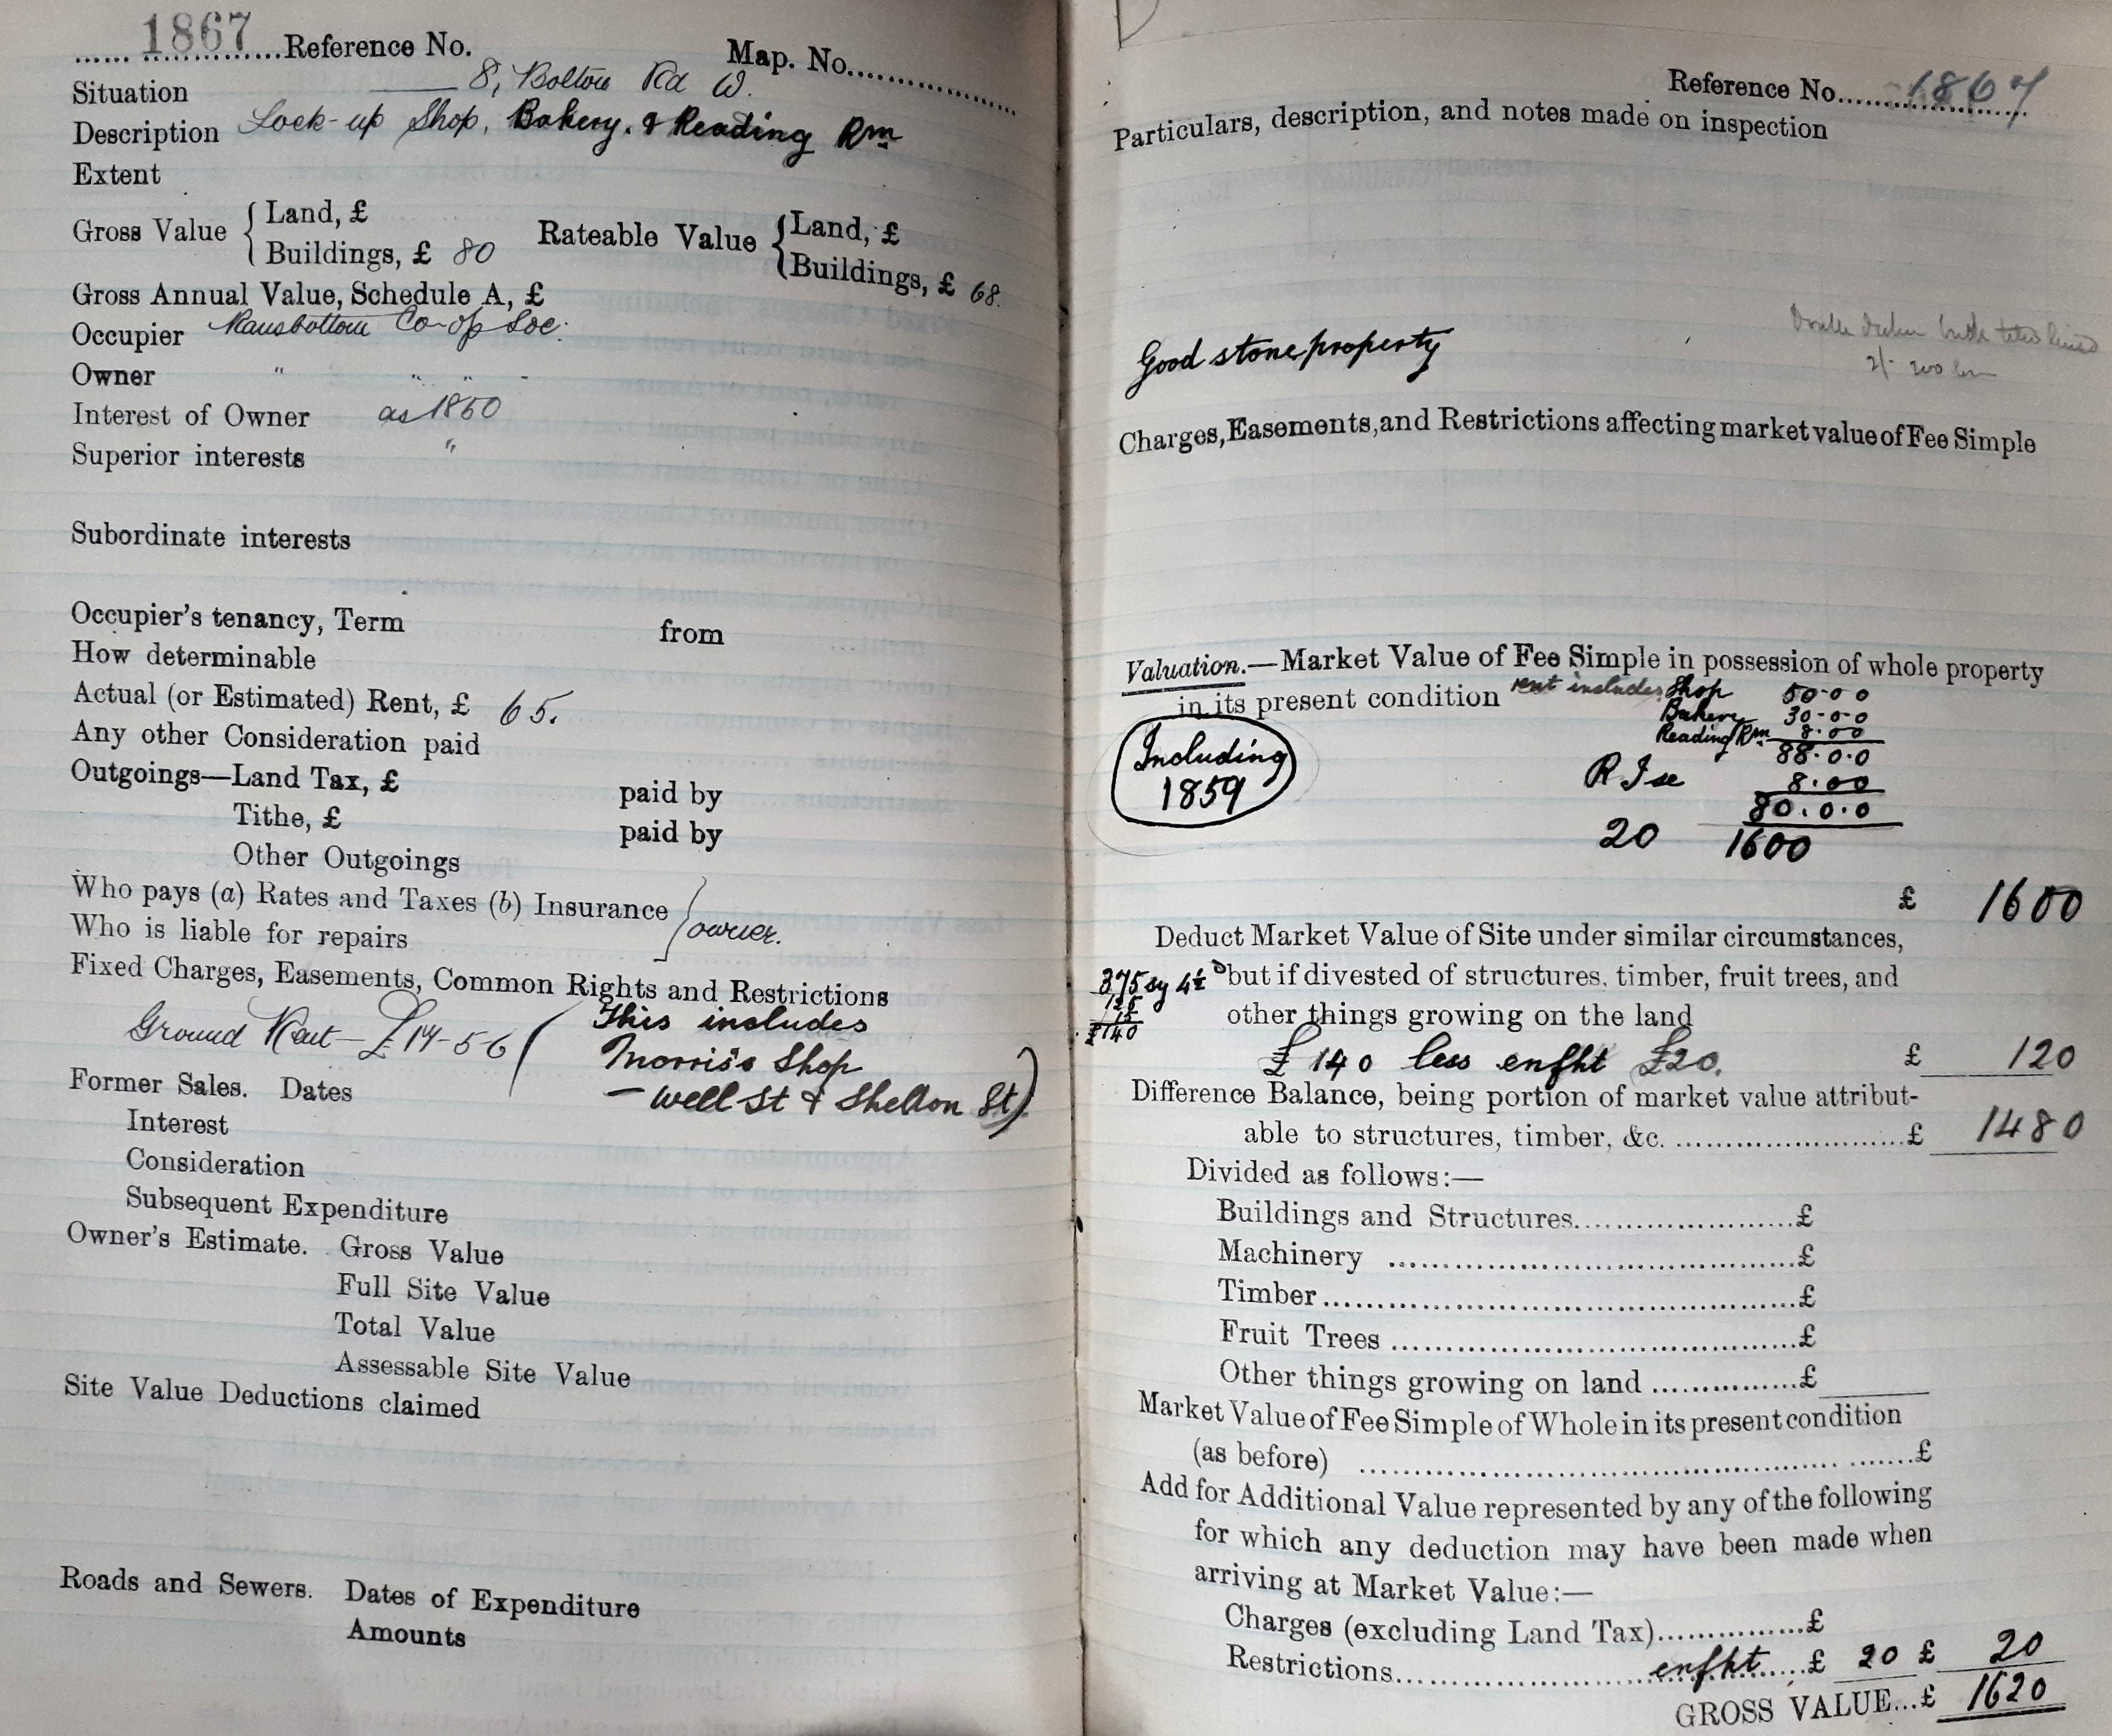 1867 Reference No. Map. No.
Situation 8, Bolton Rd W.
Description Lock-up Shop, Bakery, & Reading Rm
Extent
Gross Value { Land, £ Rateable Value { Land, £
Buildings, £ 80 Buildings, £ 68.
Gross Annual Value, Schedule A, £
Occupier Ramsbottom Co-op Soc.
Owner " " " "
Interest of Owner as 1850
Superior interests "
Subordinate interests
Occupier's tenancy, Term from
How determinable
Actual (or Estimated) Rent, £ 65.
Any other Consideration paid
Outgoings—Land Tax, £ paid by
Tithe, £ paid by
Other Outgoings
Who pays (a) Rates and Taxes (b) Insurance } owner.
Who is liable for repairs
Fixed Charges, Easements, Common Rights and Restrictions
Ground Rent — £14-5-6 ( This includes
Morris's Shop
— Well St & Shelton St)
Former Sales. Dates
Interest
Consideration
Subsequent Expenditure
Owner's Estimate. Gross Value
Full Site Value
Total Value
Assessable Site Value
Site Value Deductions claimed
Roads and Sewers. Dates of Expenditure
Amounts
Reference No. 1867
Particulars, description, and notes made on inspection
Good stone property
Charges, Easements, and Restrictions affecting market value of Fee Simple
Valuation.—Market Value of Fee Simple in possession of whole property
in its present condition rent includes Shop 50-0 0
Bakery 30-0-0
Reading Rm 8.00
88.0.0
Including 1859
8.00
80.0.0
20 1600
£ 1600
Deduct Market Value of Site under similar circumstances,
375 sy 4½ but if divested of structures, timber, fruit trees, and
other things growing on the land
£140
£140 less enfht £20. £ 120
Difference Balance, being portion of market value attribut-
able to structures, timber, &c. £ 1480
Divided as follows:—
Buildings and Structures £
Machinery £
Timber £
Fruit Trees £
Other things growing on land £
Market Value of Fee Simple of Whole in its present condition
(as before) £
Add for Additional Value represented by any of the following
for which any deduction may have been made when
arriving at Market Value:—
Charges (excluding Land Tax) £
Restrictions enfht £ 20 £ 20
GROSS VALUE...£ 1620